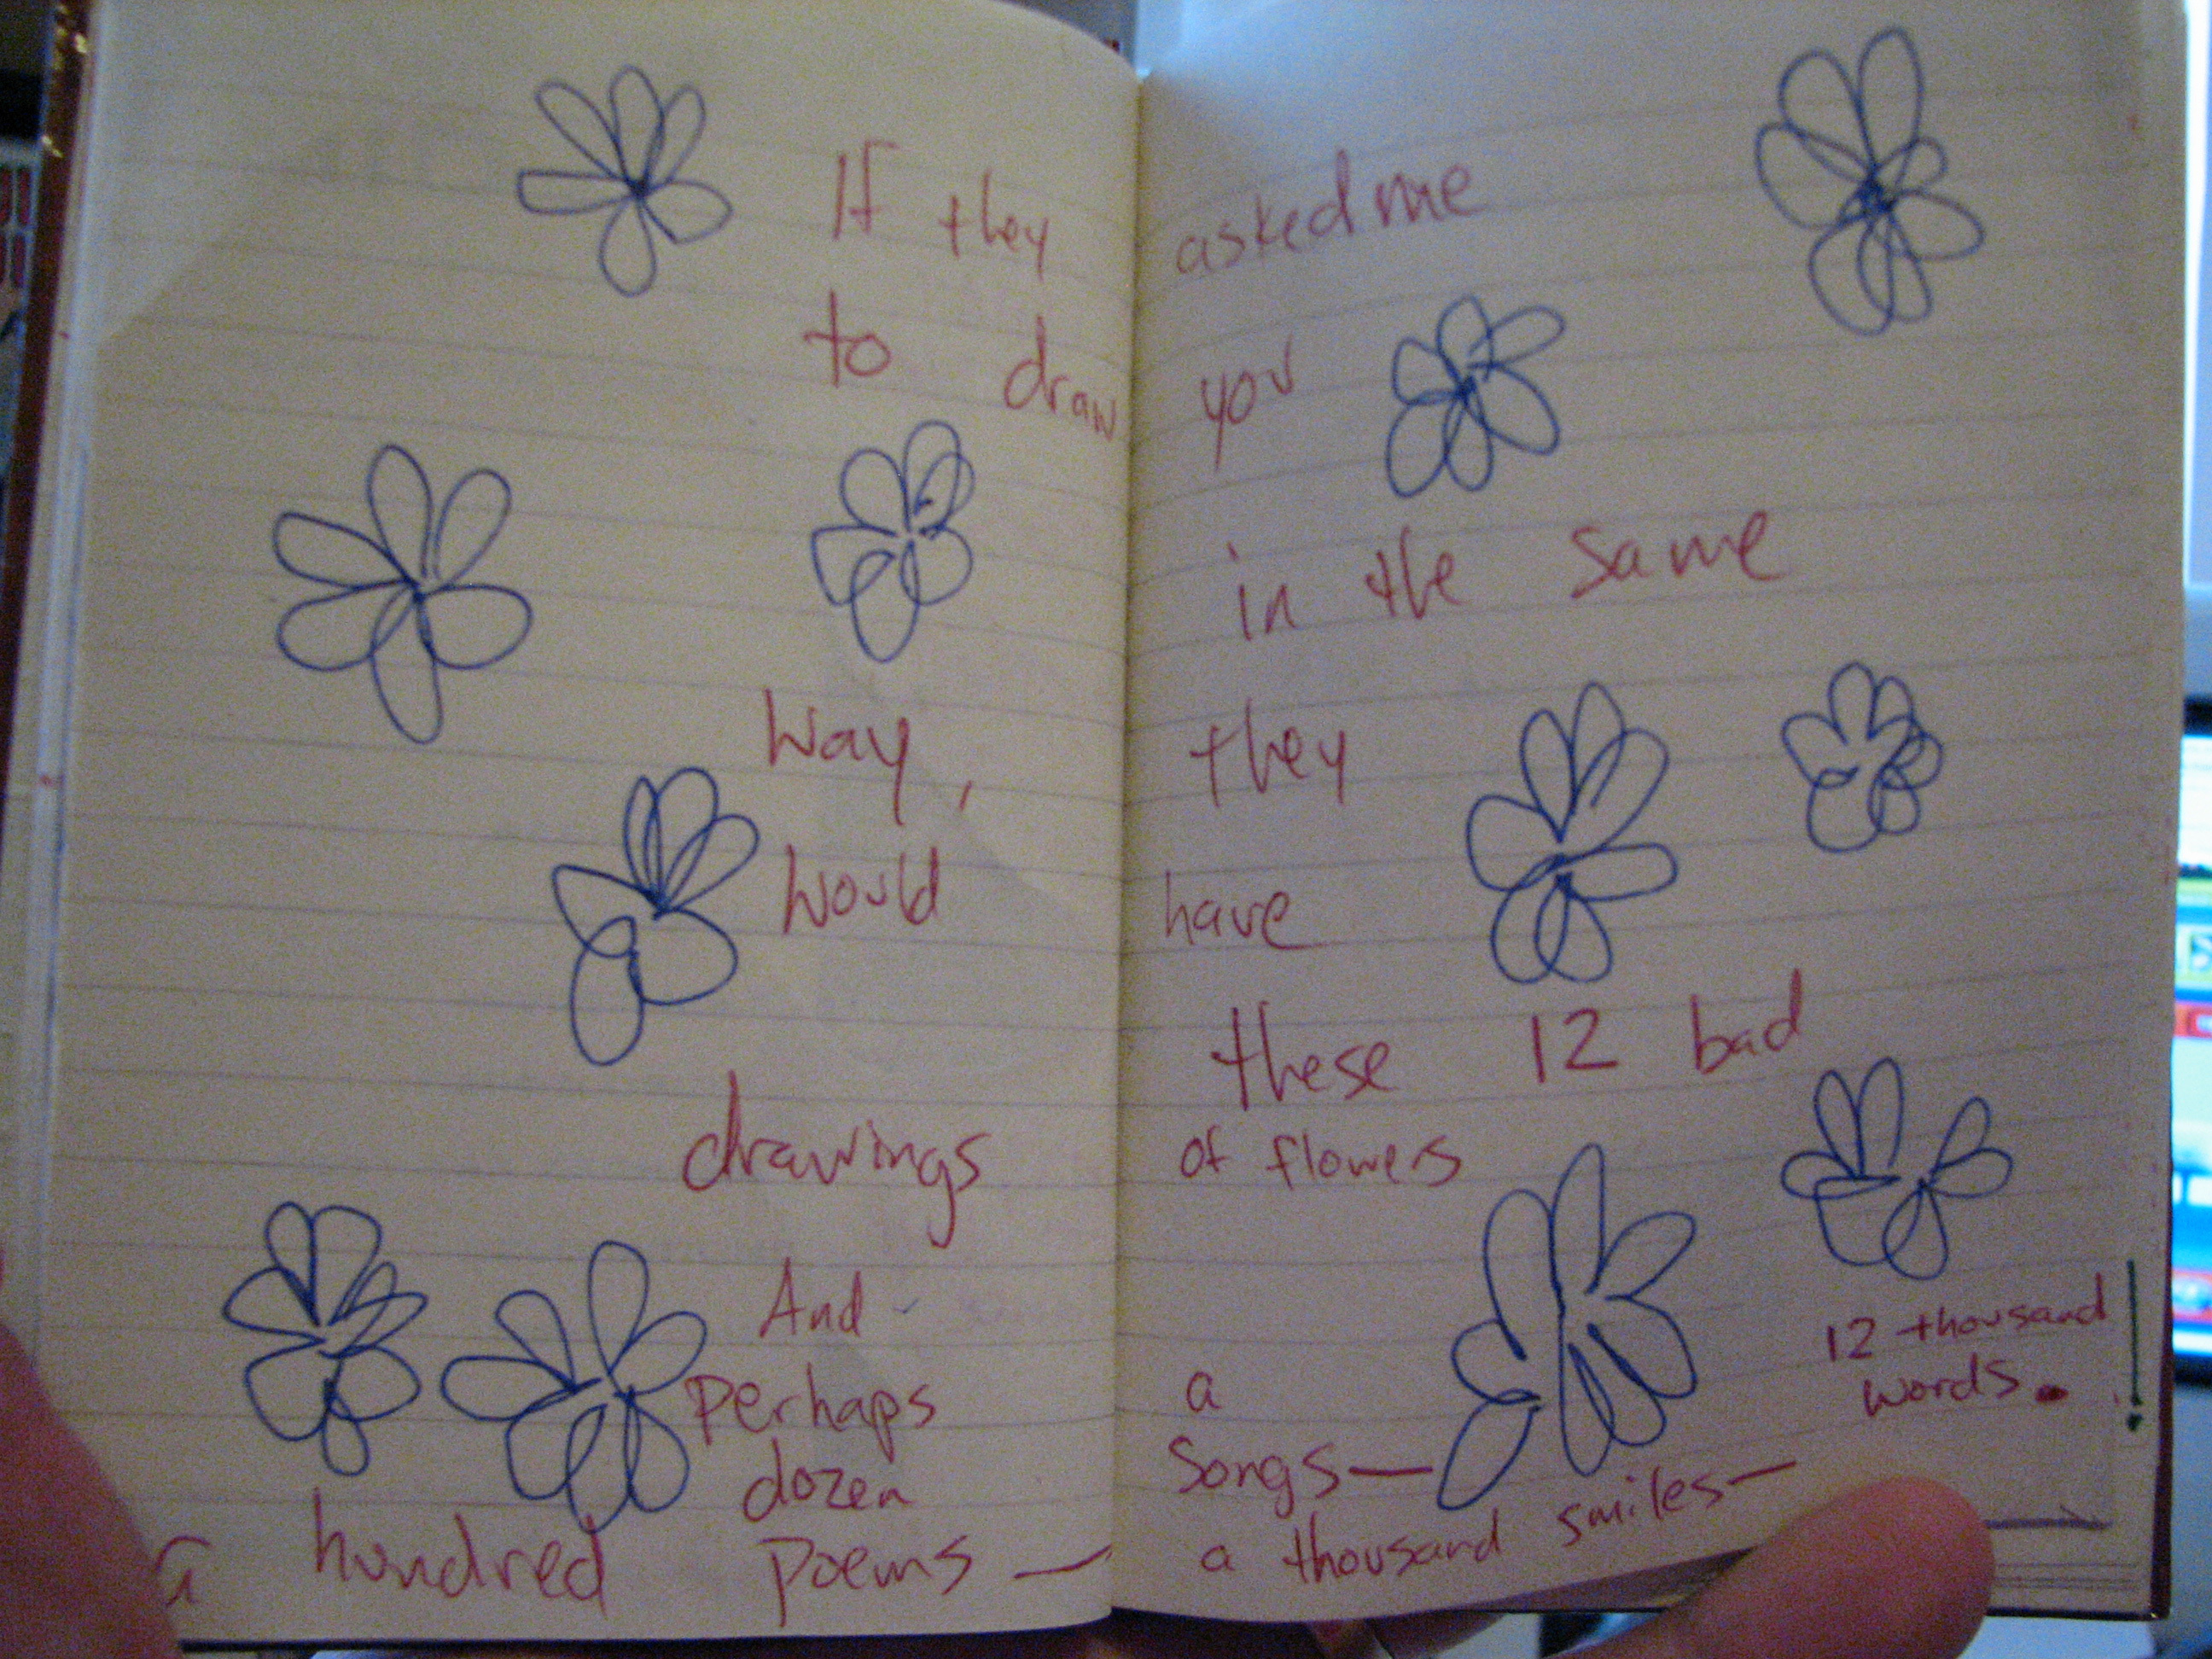 If they asked me
to draw you
in the same
way, they
would have
these 12 bad
drawings of flowers
And -
perhaps a
dozen songs—
a hundred poems — a thousand smiles—
12 thousand
words. !